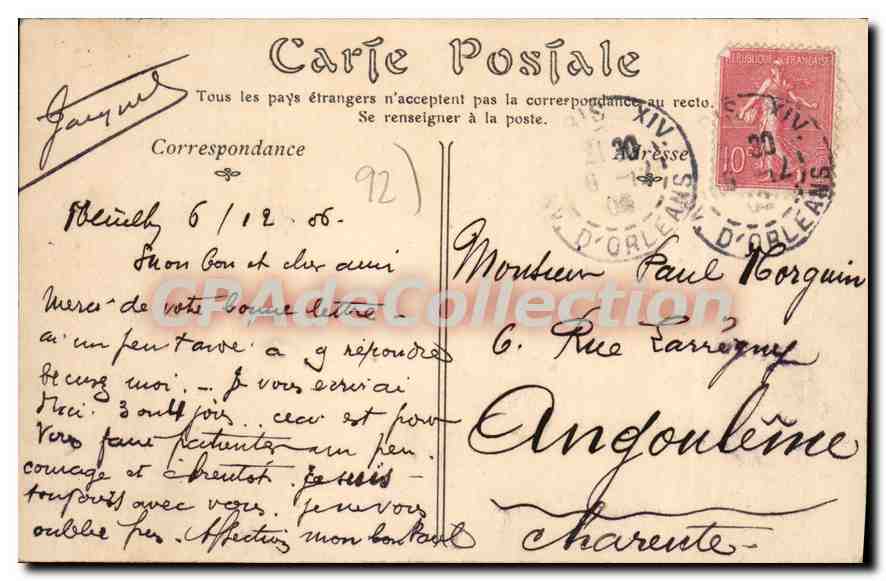 Carte Postale
Tous les pays étrangers n'acceptent pas la correrpondance au recto.
Se renseigner à la poste.
Correspondance
Adresse
Jacques
92)
REPUBLIQUE FRANÇAISE
10
PARIS XIV
AV. D'ORLEANS
PARIS XIV
AV. D'ORLEANS
Neuilly 6/12 06.
Mon bon et cher ami
Merci de votre bonne lettre -
ai un peu tardé à y répondre
excusez moi. - Je vous écrirai
d'ici 3 ou 4 jours ceci est pour
vous faire patienter un peu.
courage et à bientôt. je suis
toujours avec vous. je ne vous
oublie pas. Affection mon bon Paul
Monsieur Paul Morguin
6. Rue Larrégny
Angoulême
Charente -
CPAdeCollection